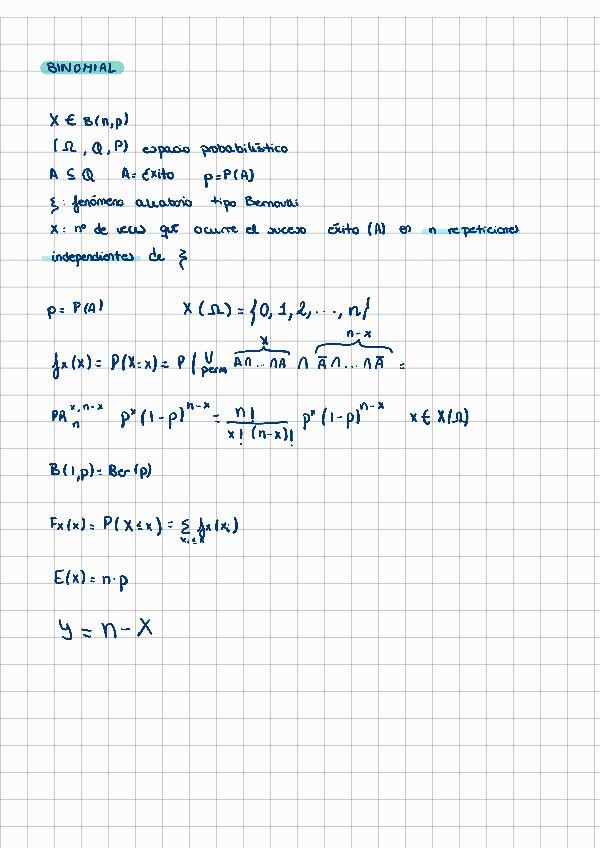 BINOMIAL
X ∈ B(n,p)
(Ω, Q, P) espacio probabilístico
A ⊆ Q A = Éxito p=P(A)
ξ: fenómeno aleatorio tipo Bernoulli
X: nº de veces que ocurre el suceso éxito (A) en n repeticiones
independientes de ξ
p = P(A) X(Ω) = {0, 1, 2, ..., n}
x n-x
fx(x) = P(X=x) = P ( ∪ perm A∩...∩A ∩ Ā∩...∩Ā =
PA_n^{x, n-x} p^x (1-p)^{n-x} = n! / x! (n-x)! p^x (1-p)^{n-x} x ∈ X(Ω)
B(1,p) = Ber(p)
Fx(x) = P(X ≤ x) = Σ_{xi≤x} fx(xi)
E(x) = n·p
Y = n - X